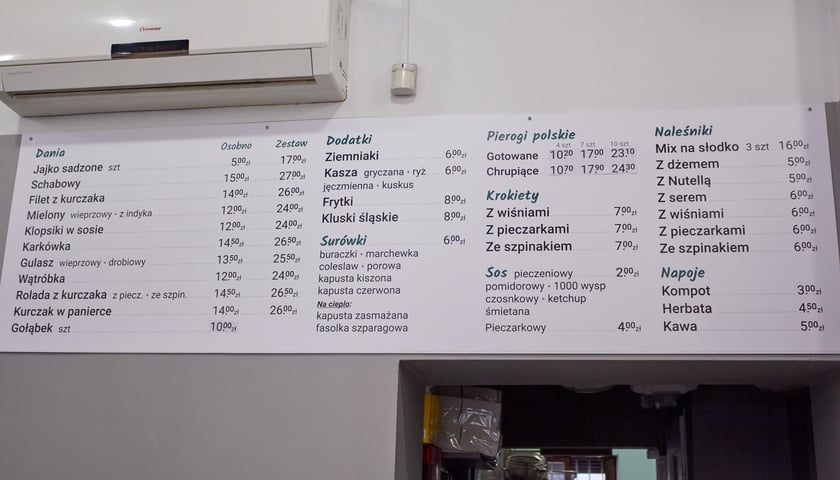 Dania Osobno Zestaw
Jajko sadzone szt 5,00zł 17,00zł
Schabowy 15,00zł 27,00zł
Filet z kurczaka 14,00zł 26,00zł
Mielony wieprzowy · z indyka 12,00zł 24,00zł
Klopsiki w sosie 12,00zł 24,00zł
Karkówka 14,50zł 26,50zł
Gulasz wieprzowy · drobiowy 13,50zł 25,50zł
Wątróbka 12,00zł 24,00zł
Rolada z kurczaka z piecz. · ze szpin. 14,50zł 26,50zł
Kurczak w panierce 14,00zł 26,00zł
Gołąbek szt 10,00zł
Dodatki
Ziemniaki 6,00zł
Kasza gryczana · ryż 6,00zł
jęczmienna · kuskus
Frytki 8,00zł
Kluski śląskie 8,00zł
Surówki 6,00zł
buraczki · marchewka
coleslaw · porowa
kapusta kiszona
kapusta czerwona
Na ciepło:
kapusta zasmażana
fasolka szparagowa
Pierogi polskie
4 szt 7 szt 10 szt
Gotowane 10,20 17,90 23,10
Chrupiące 10,70 17,90 24,30
Krokiety
Z wiśniami 7,00zł
Z pieczarkami 7,00zł
Ze szpinakiem 7,00zł
Sos pieczeniowy 2,00zł
pomidorowy · 1000 wysp
czosnkowy · ketchup
śmietana
Pieczarkowy 4,00zł
Naleśniki
Mix na słodko 3 szt 16,00zł
Z dżemem 5,00zł
Z Nutellą 5,00zł
Z serem 6,00zł
Z wiśniami 6,00zł
Z pieczarkami 6,00zł
Ze szpinakiem 6,00zł
Napoje
Kompot 3,00zł
Herbata 4,50zł
Kawa 5,00zł